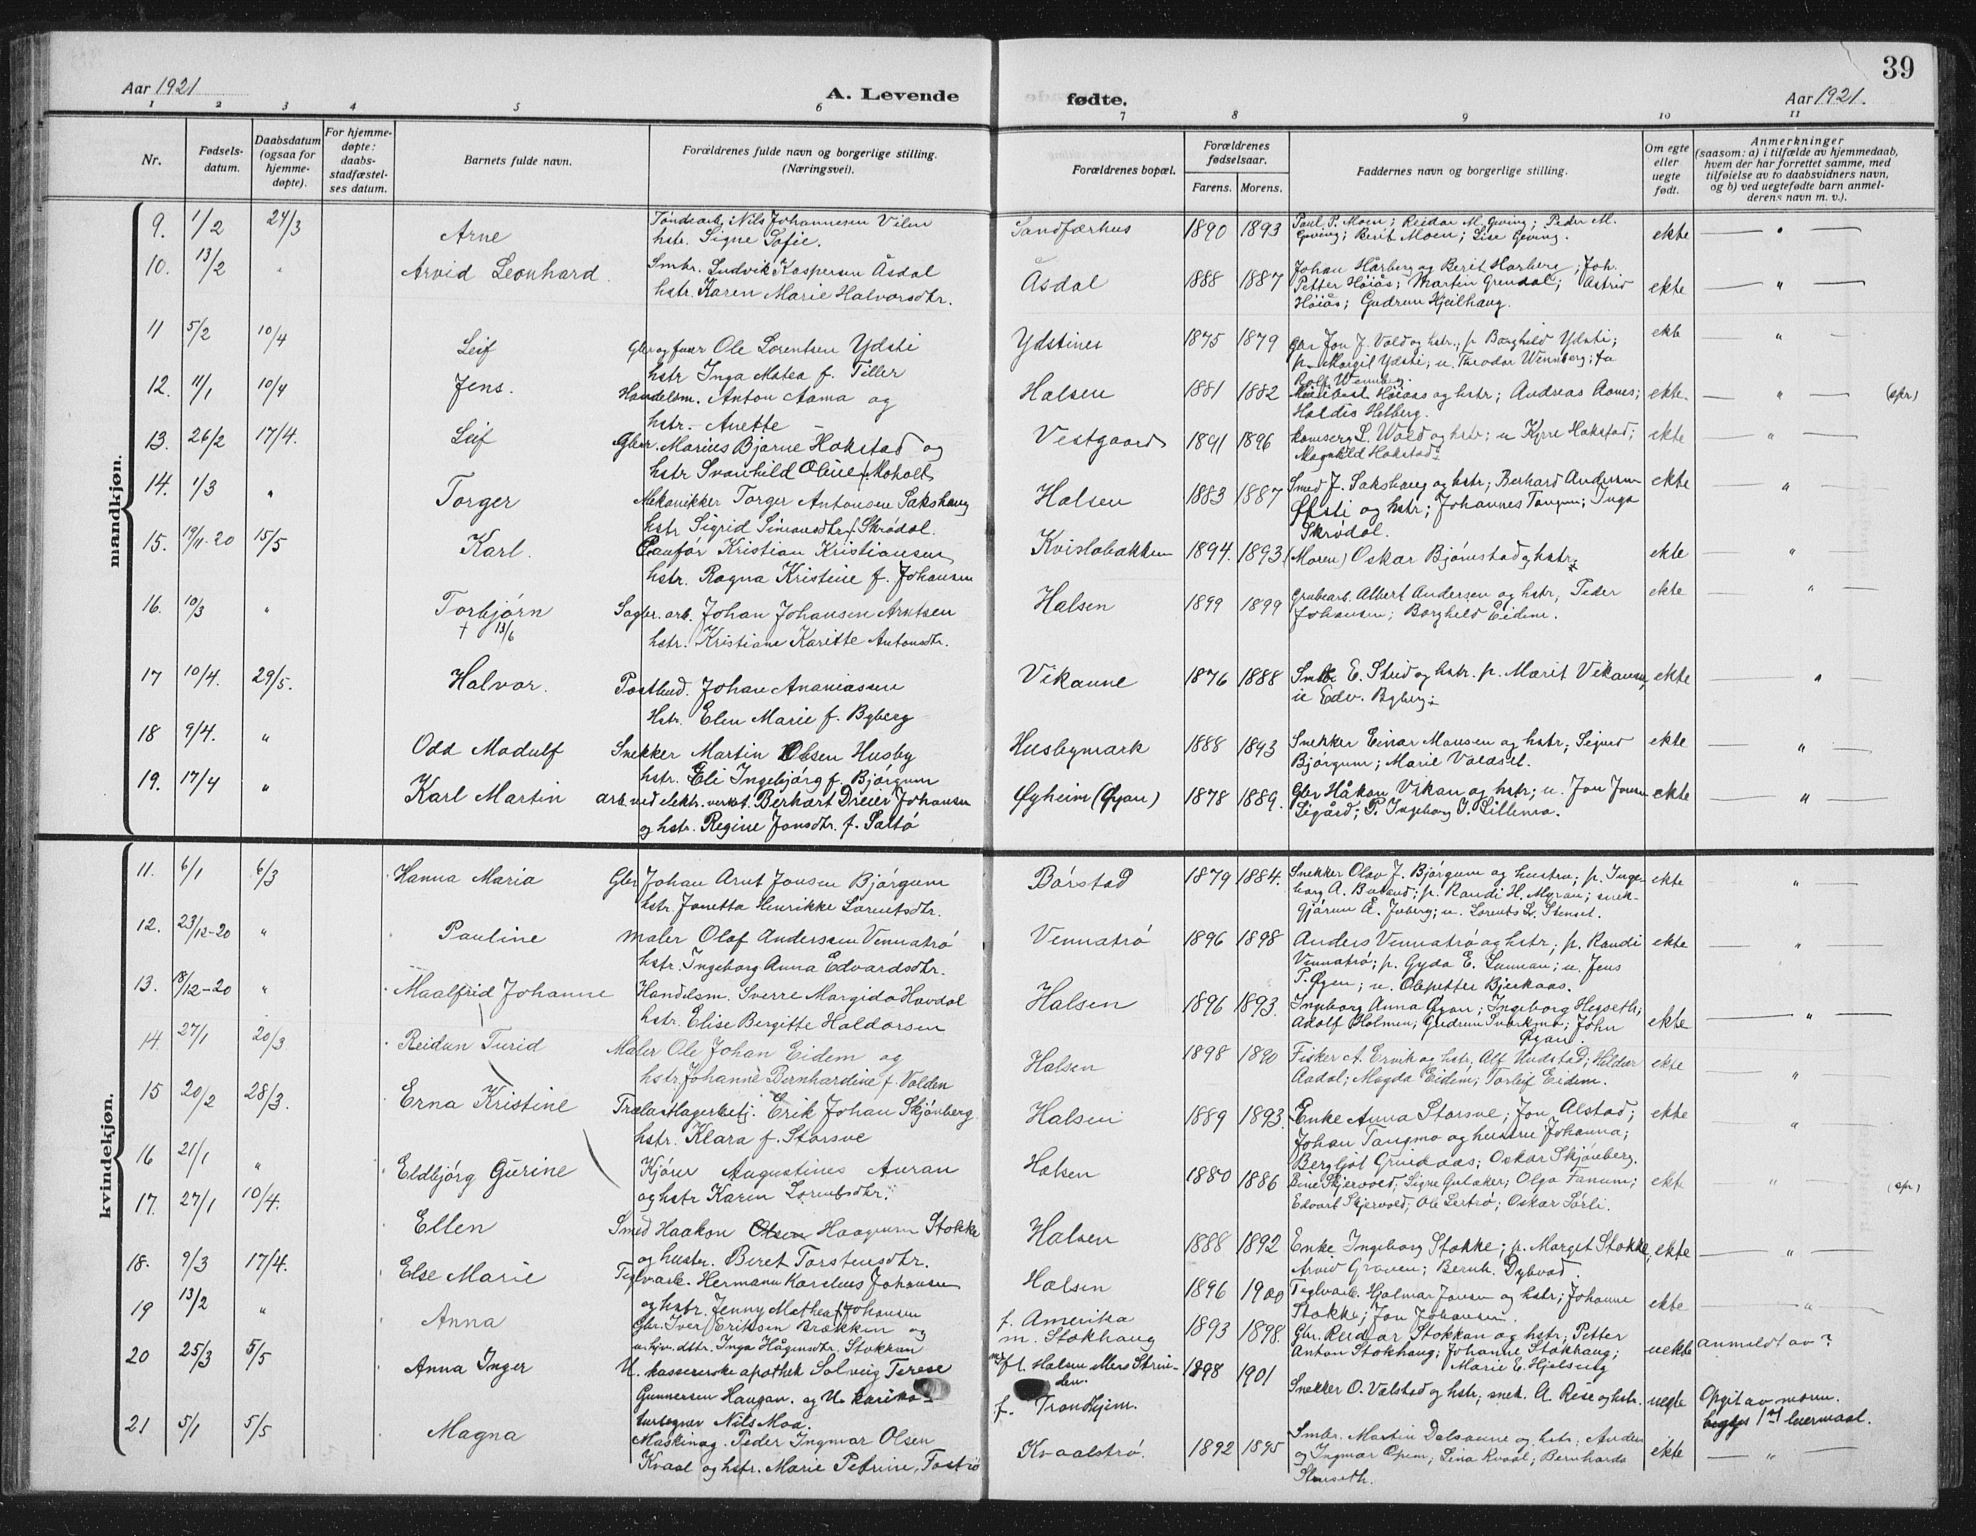 39
Aar 1921 A. Levende fødte. Aar 1921.
1 2 3 4 5 6 7 8 9 10 11
Nr.
Fødsels-
datum.
Daabsdatum
(ogsaa for
hjemme-
døpte).
For hjemme-
døpte:
daabs-
stadfæstel-
ses datum.
Barnets fulde navn.
Forældrenes fulde navn og borgerlige stilling.
(Næringsvei).
Forældrenes bopæl.
Forældrenes
fødselsaar.
Farens. Morens.
Faddernes navn og borgerlige stilling.
Om egte
eller
uegte
født.
Anmerkninger
(saasom: a) i tilfælde av hjemmedaab,
hvem der har forrettet samme, med
tilføielse av to daabsvidners navn,
og b) ved uegtefødte barn anmel-
derens navn m. v.).
mandkjøn.
9. 1/2 24/3 Arne
Tøndearb. Nils Johannesen Vilen
hstr. Signe Sofie.
Sandfærhus 1890 1893
Paul P. Moen; Reidar M. Geving; Peder M.
Geving; Berit Moen; Lise Geving.
ekte
10. 13/2 " Arvid Leonhard
Smbr. Ludvik Kaspersen Åsdal
hstr. Karen Marie Halvorsdtr.
Åsdal 1888 1887
Johan Hårberg og Berit Harberg; Joh.
Petter Höiås; Martin Grendal; Astrid
Höiås; Gudrun Kjeilhaug.
ekte "
11 5/2 10/4 Leif
Gbr og fuer Ole Lorentsen Ydsti
hstr Inga Matea f. Tiller
Ydstines 1875 1879
Gbr Jon J. Vold og hstr.; p Borghild Ydsti;
p. Margit Ydsti; u. Theodor Wennberg; fa
Rolf Wennberg.
ekte "
12. 11/1 10/4 Jens.
Handelsm. Anton Aama og
hstr. Anette
Halsen 1881 1882
Höiaas og hstr; Andreas Aames;
Haldis Holberg.
ekte. " (spr)
13. 26/2 17/4. Leif
Gbr. Marius Bjarne Hokstad og
hstr Svanhild Oline f. Moholt
Vestgaard 1891 1896
L. Wold og hstr; u Kyrre Hokstad;
Magnhild Hokstad.
ekte "
14. 1/3 " Torger
Mekanikker Torger Antonsen Sakshaug
hstr Sigrid Simonsdtr f. Skrødal.
Halsen 1883 1887
Smed J. Sakshaug og hstr; Berhard Andersen
Øfsti og hstr; Johannes Tangen; Inga
Skrødal.
ekte "
15. 19/11-20 15/5 Karl.
Kristian Kristiansen
hstr. Ragna Kristine f. Johansen
Kvislabakken 1894. 1893
(Moren) Oskar Bjørnstad og hstr;
ekte "
16. 10/3 " Torbjørn
† 13/6
Sagbr. arb. Johan Johansen Arntsen
hstr. Kristiane Karitte Antonsdtr.
Halsen 1899 1899
Grubearb. Albert Andersen og hstr; Peder
Johansen; Borghild Eidem.
ekte "
17 10/4. 29/5. Halvor.
Postbud. Johan Ananiassen
Hstr. Elen Marie f. Byberg
Vikanne 1876 1888
Smbr E. Steid og hstr. p. Marit Vikansen,
u Edv. Byberg;
ekte "
18 9/4. " Odd Modulf
Snekker Martin Olsen Husby
hstr. Eli Ingebjørg f. Bjørgum
Husbymark 1888 1893
Snekker Einar Monsen og hstr; Signe
Bjørgum; Marie Valdset.
ekte "
19. 17/4 " Karl Martin
arb. ved elektr. verket. Berhart Dreier Johansen
og hstr. Regine Jonsdtr. f. Saltø
Øyheim (Øyan) 1878 1889.
Gbr Håkon Vikan og hstr; u. Jon Jonsen
Ligård; P. Ingeborg J. Lillemo.
ekte "
kvindekjøn.
11. 6/1 6/3 Hanna Maria
Gbr Johan Arnt Jonsen Bjørgum
hstr. Jonetta Henrikke Lorentsdtr.
Børstad 1879 1884.
Snekker Olav J. Bjørgum og hustru; p. Inge-
borg A. Buland; p. Randi H. Myran; snek-
 Å. Juberg; u. Lorents L. Stenset.
ekte "
12. 23/12-20 " Pauline
Maler Olaf Anderssen Vennatrø
hstr. Ingeborg Anna Edvardsdtr.
Vennatrø 1896 1898
Anders Vennatrø og hstr; p. Randi
Vennatrø; p. Gyda E. Lunnan; u. Jens
P. Øyen; u. Olepetter Bjerkaas.
ekte "
13. 18/12-20 " Maalfrid Johanne
Handelsm. Sverre Margido Havdal
hstr. Elise Bergitte Haldorsen
Halsen 1896 1893.
Ingeborg Anna Øyan; Ingeborg Hegseth;
Adolf Holmen; Gudrun Svarkmo; John
Øyan.
ekte "
14. 27/1 20/3 Reidun Turid
Maler Ole Johan Eidem og
hstr Johanne Bernhardine f. Volden
Halsen 1898 1890
Fisker A. Ervik og hstr, Alf Undstad; Hildur
Aadal; Magda Eidem; Torleif Eidem.
ekte "
15 20/2 28/3. Erna Kristine
Trælastlagerbetj. Erik Johan Skjønberg
hstr. Klara f. Storsve
Halsen 1889 1893.
Enke Anna Storsve; Jon Alstad;
Johan Tangmo og hustru Johanna;
Bergljot ; Oskar Skjønberg.
ekte "
16 21/1 " Eldbjørg Gurine
Kjører Augustinus Auran
og hstr Karen Lorentsdtr;
Halsen 1880 1886
Skjervold; Signe Gutaker; Olga Fanum;
Edvart Skjervold; Ole Lertrø; Oskar Sørli.
ekte " (spr.)
17. 27/1 10/4. Ellen
Smed Haakon Olsen Haagenn Stokke
og hustr. Beret Torstensdtr.
Halsen 1888 1892
Enke Ingeborg Stokke; p. Margit Stokke,
Arvid Graven; Bernh. Dybvad.
ekte "
18. 9/3 17/4. Else Marie
Teglvarb. Hermann Karelius Johansen
og hstr. Jenny Mathea f. Johansen
Halsen 1896 1900
Teglvarb. Hjalmar Jonsen og hstr; Johanne
Stokke; Jon Johansen.
ekte "
19 13/2 " Anna
Gbr. Iver Eriksen Brækken og
dtr. Inga Hågensdtr. Stokkan
f. Amerika
m. Stokhaug
1893 1898.
Gbr. Reidar Stokkan og hstr; Petter
Anton Stokhaug; Johanne Stokhaug;
Marie E. Hjelseng
uekte anmeldt av ?
20 25/3 5/5 Anna Inger
U. kassererske apothek Solveig Terese
Gunnersen Haugan. og U karika-
turtegner Nils Moa.
m. fl. Halsen Mere Strin-
den.
f. Trondhjem.
1898 1901
Snekker O. Valstad og hstr; snek. A. Rese og hstr.
uegte
Opgit av moren.
begges 1ste leiermaal.
21 5/1 5/5 Magna
Maskinag. Peder Ingmar Olsen
Kvaal og hstr. Marie Petrine,
Kvaalstrø. 1892 1895
Smbr. Martin Dalsaune og hstr. Anders
og Ingmar Opem; Lina Kvaal; Bernhard
Stenseth.
ekte "